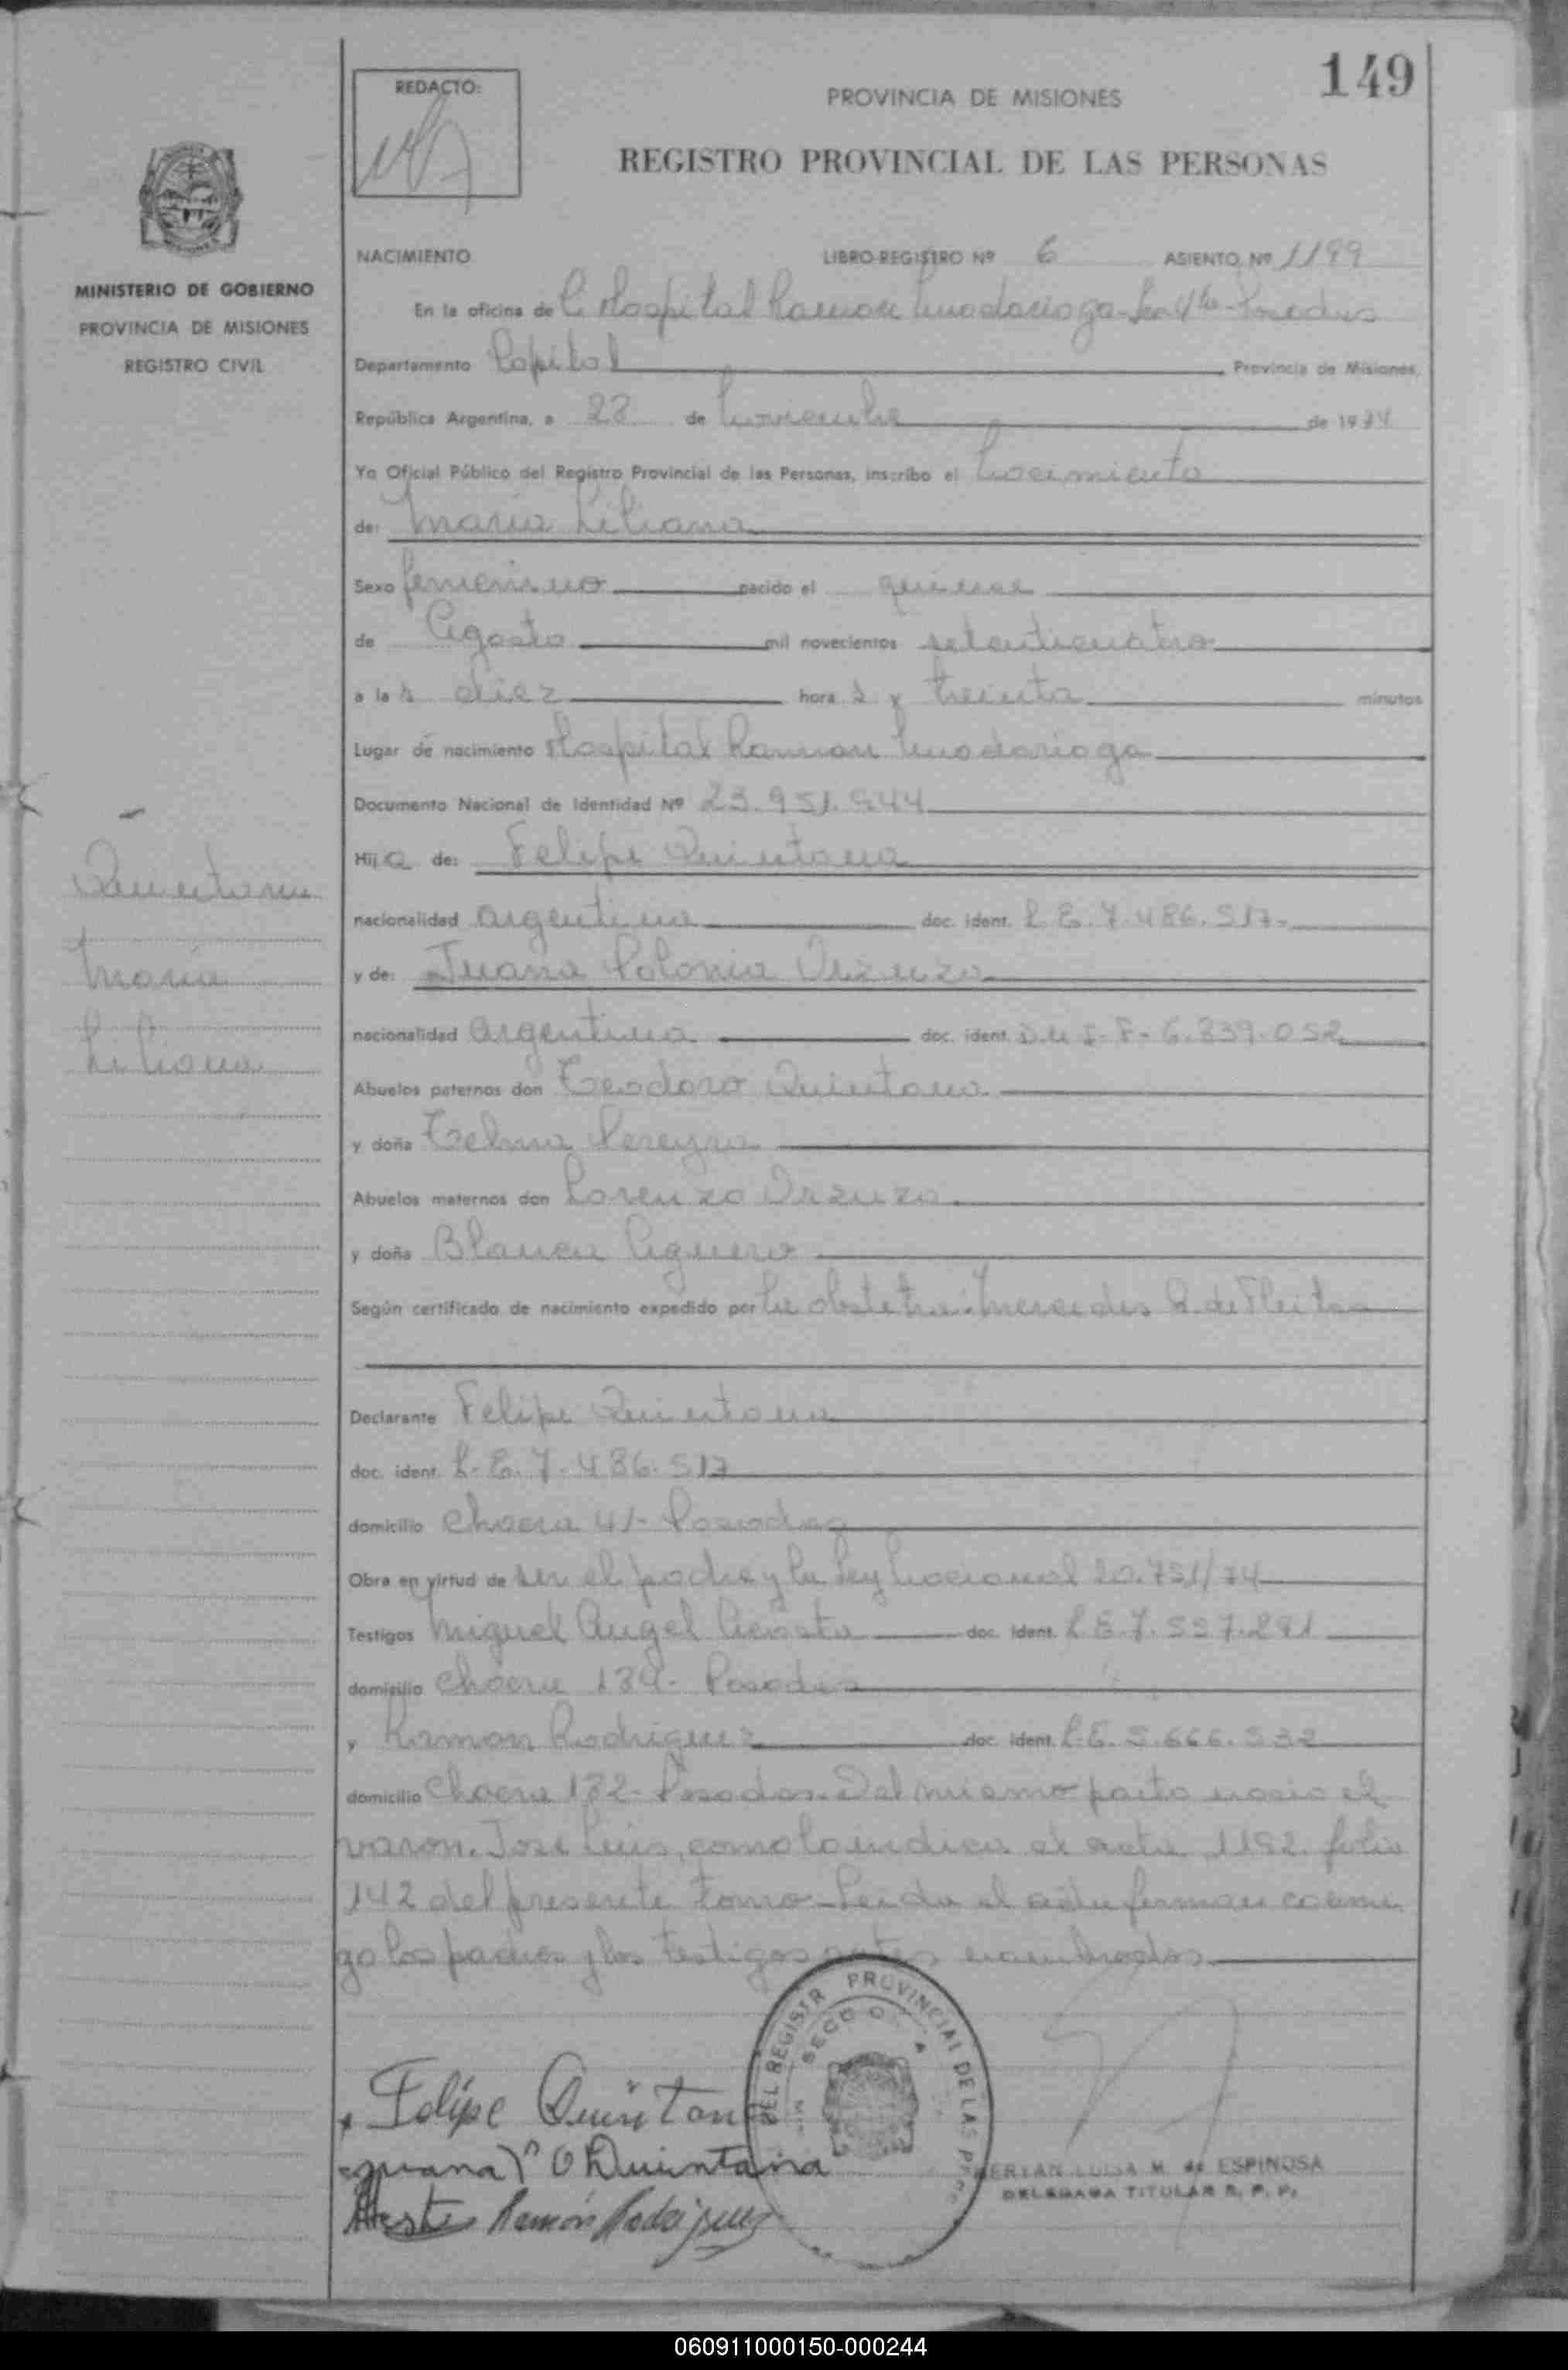 149
REDACTO:
PROVINCIA DE MISIONES
REGISTRO PROVINCIAL DE LAS PERSONAS
MINISTERIO DE GOBIERNO
PROVINCIA DE MISIONES
REGISTRO CIVIL
NACIMIENTO LIBRO-REGISTRO Nº 6 ASIENTO Nº 1199
En la oficina de Hospital Ramon Posadas
Departamento Capital Provincia de Misiones,
República Argentina, a 28 de Noviembre de 1974
Yo Oficial Público del Registro Provincial de las Personas, inscribo el Nacimiento
de: Maria Liliana
Sexo femenino nacido el quince
de Agosto mil novecientos setenticuatro
a las diez horas y treinta minutos
Lugar de nacimiento Hospital Ramon Madariaga
Documento Nacional de Identidad Nº 23.951.
Hija de: Felipe Quintana
nacionalidad argentina doc. ident. L E. 7.486.517-
y de: Juana Polonia Orzuza
nacionalidad argentina doc. ident. 6.839.052
Abuelos paternos don Teodoro Quintana
y doña Telma Pereyra
Abuelos maternos don Lorenzo Orzuza
y doña Blanca Aguero
Según certificado de nacimiento expedido por la obstetra: Mercedes de Fleitas
Declarante Felipe Quintana
doc. ident. L. E. 7.486.517
domicilio Chacra 41- Posadas
Obra en virtud de ser el padre y la Ley Nacional 20.751/74
Testigos Miguel Angel Acosta doc. ident. L E 7.
domicilio Chacra Posadas
y Ramon Rodriguez doc. ident. L.E. 5.666.532
domicilio Chacra 132- Posadas. Del mismo parto nacio el
varon. Jose Luis, como lo indica el acta 1192 folio
142 del presente tomo. Leida el acta firman conmi
go los padres y los testigos antes nombrados
Quintana
Maria
Liliana
Felipe Quintana
Juana Quintana
Ramón Rodriguez
DEL REGISTR PROVINCIAL DE LAS
LUISA M. de ESPINOSA
DELEGADA TITULAR R. P. P.
060911000150-000244